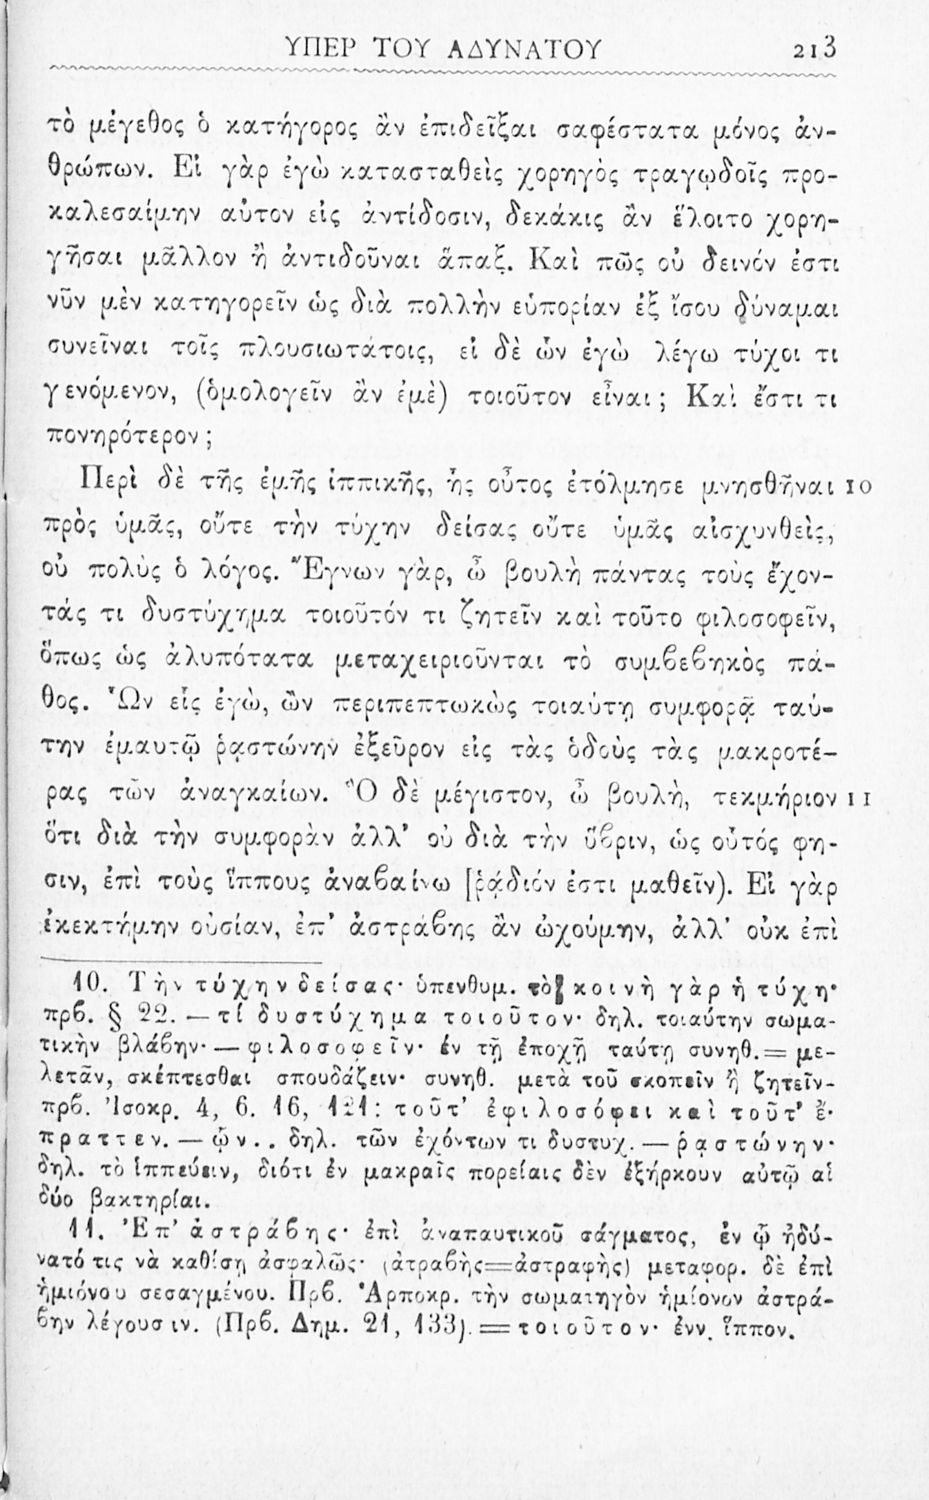 ΥΠΕΡ ΤΟΥ ΑΔΥΝΑΤΟΥ 213
τὸ μέγεθος ὁ κατήγορος ἂν ἐπιδεῖξαι σαφέστατα μόνος ἀν-
θρώπων. Εἰ γὰρ ἐγὼ κατασταθεὶς χορηγὸς τραγῳδοῖς προ-
καλεσαίμην αὐτον εἰς ἀντίδοσιν, δεκάκις ἂν ἕλοιτο χορη-
γῆσαι μᾶλλον ἢ ἀντιδοῦναι ἅπαξ. Καὶ πῶς οὐ δεινόν ἐστι
νῦν μὲν κατηγορεῖν ὡς διὰ πολλὴν εὐπορίαν ἐξ ἴσου δύναμαι
συνεῖναι τοῖς πλουσιωτάτοις, εἰ δὲ ὧν ἐγὼ λέγω τύχοι τι
γενόμενον, (ὁμολογεῖν ἂν ἐμὲ) τοιοῦτον εἶναι; Καὶ ἔστι τι
πονηρότερον;
Περὶ δὲ τῆς ἐμῆς ἱππικῆς, ἧς οὗτος ἐτόλμησε μνησθῆναι 10
πρὸς ὑμᾶς, οὔτε τὴν τύχην δείσας οὔτε ὑμᾶς αἰσχυνθεὶς,
οὐ πολὺς ὁ λόγος. Ἔγνων γὰρ, ὦ βουλὴ πάντας τοὺς ἔχον-
τάς τι δυστύχημα τοιοῦτόν τι ζητεῖν καὶ τοῦτο φιλοσοφεῖν,
ὅπως ὡς ἀλυπότατα μεταχειριοῦνται τὸ συμβεβηκὸς πά-
θος. Ὧν εἷς ἐγὼ, ὢν περιπεπτωκὼς τοιαύτῃ συμφορᾷ ταύ-
την ἐμαυτῷ ῥᾳστώνην ἐξεῦρον εἰς τὰς ὁδοὺς τὰς μακροτέ-
ρας τῶν ἀναγκαίων. Ὃ δὲ μέγιστον, ὦ βουλὴ, τεκμήριον 11
ὅτι διὰ τὴν συμφορὰν ἀλλ' οὐ διὰ τὴν ὕβριν, ὡς οὗτός φη-
σιν, ἐπὶ τοὺς ἵππους ἀναβαίνω [ῥᾴδιόν ἐστι μαθεῖν). Εἰ γὰρ
ἐκεκτήμην οὐσίαν, ἐπ' ἀστράβης ἂν ὠχούμην, ἀλλ' οὐκ ἐπὶ
10. Τὴν τύχην δείσας· ὑπενθυμ. τὸ κοινὴ γὰρ ἡ τύχη·
πρβ. § 22. — τί δυστύχημα τοιοῦτον· δηλ. τοιαύτην σωμα-
τικὴν βλάβην· — φιλοσοφεῖν· ἐν τῇ ἐποχῇ ταύτῃ συνηθ. = με-
λετᾶν, σκέπτεσθαι σπουδάζειν· συνηθ. μετὰ τοῦ σκοπεῖν ἢ ζητεῖν-
πρβ. Ἰσοκρ. 4, 6. 16, 121: τοῦτ' ἐφιλοσόφει καὶ τοῦτ' ἔ-
πραττεν. — ὧν.. δηλ. τῶν ἐχόντων τι δυστυχ. — ῥᾳστώνην·
δηλ. τὸ ἱππεύειν, διότι ἐν μακραῖς πορείαις δὲν ἐξήρκουν αὐτῷ αἱ
δύο βακτηρίαι.
11. Ἐπ' ἀστράβης· ἐπὶ ἀναπαυτικοῦ σάγματος, ἐν ᾧ ἠδύ-
νατό τις νὰ καθίσῃ ἀσφαλῶς· (ἀτραβὴς=ἀστραφὴς) μεταφορ. δὲ ἐπὶ
ἡμιόνου σεσαγμένου. Πρβ. Ἁρποκρ. τὴν σωματηγὸν ἡμίονον ἀστρά-
βην λέγουσιν. (Πρβ. Δημ. 21, 133). = τοιοῦτον· ἐνν. ἵππον.